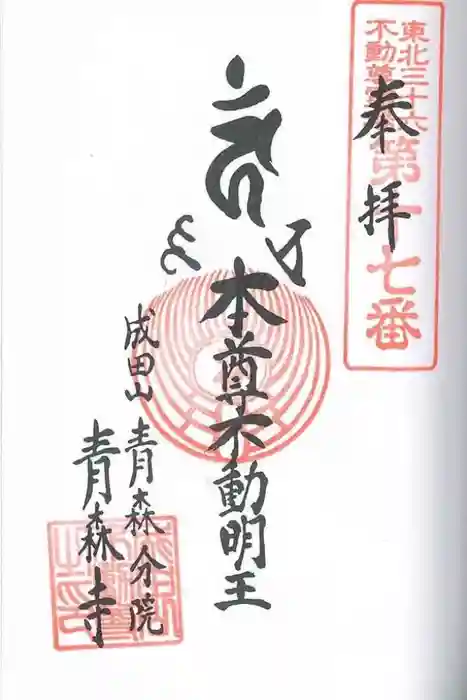 東北三十六
不動尊
第十七番
奉拝
本尊不動明王
成田山
青森分院
青森寺